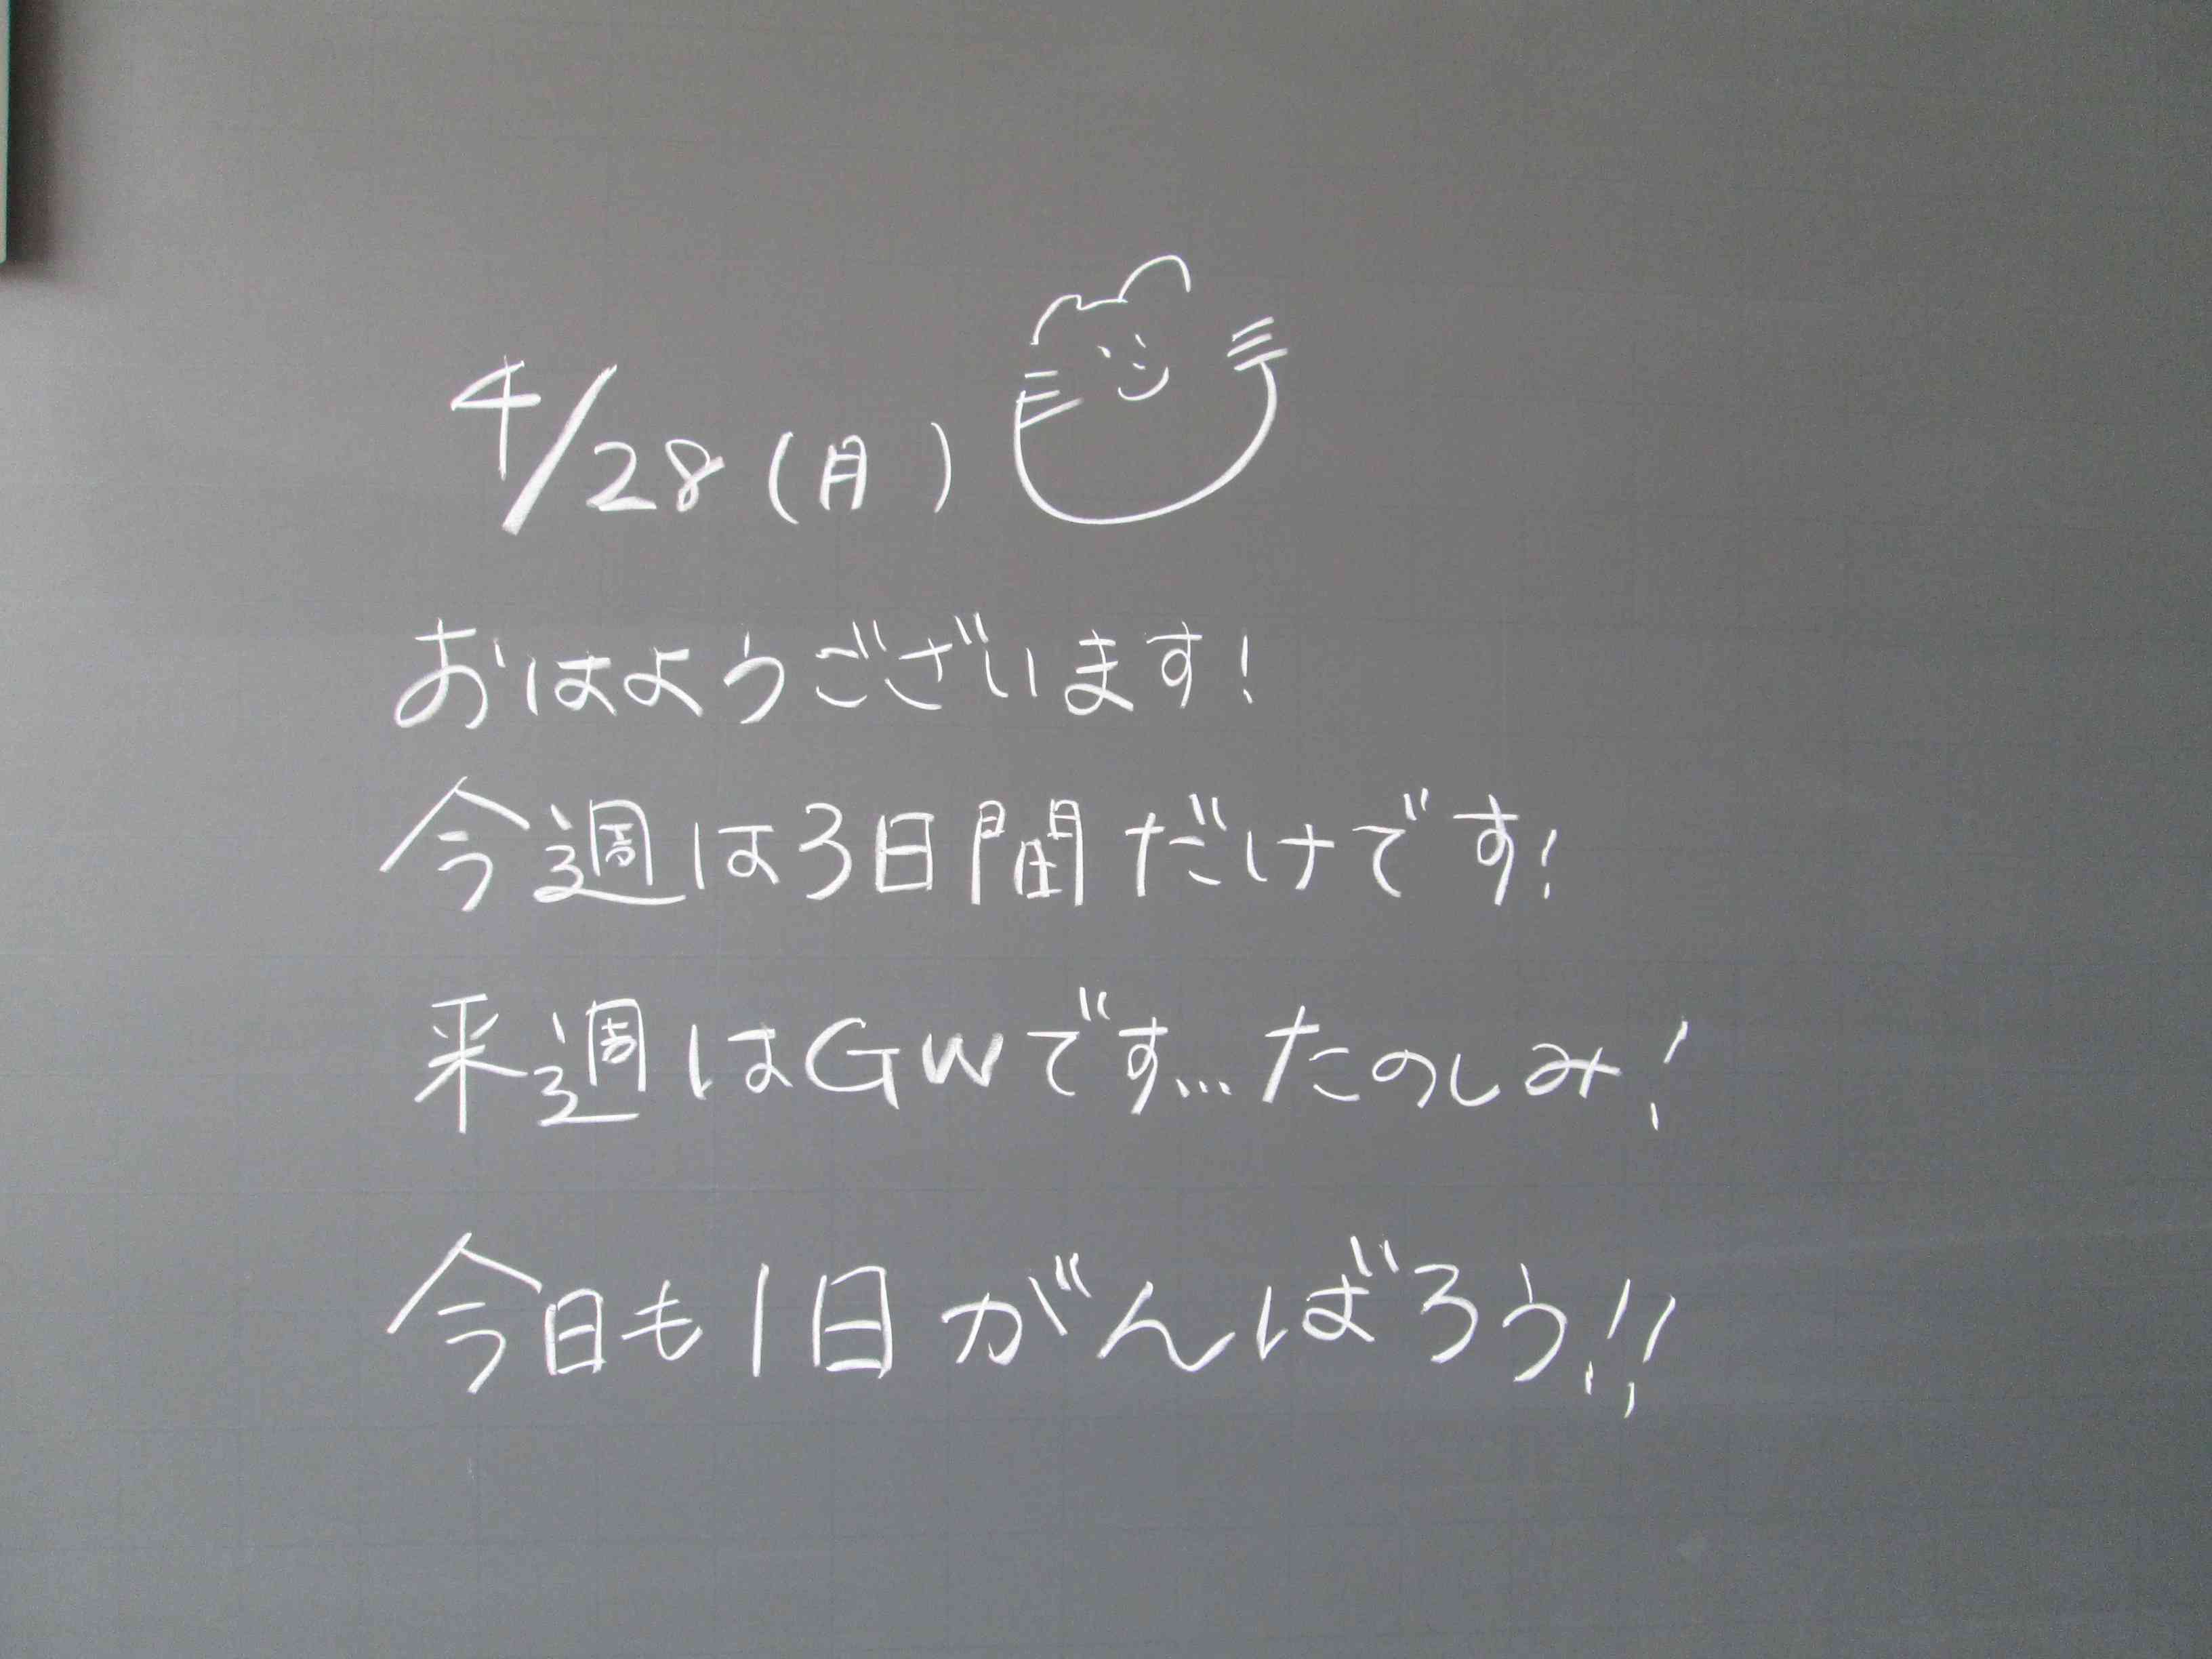 4/28(月)
おはようございます!
今週は3日間だけです!
来週はGWです…たのしみ!
今日も1日がんばろう!!